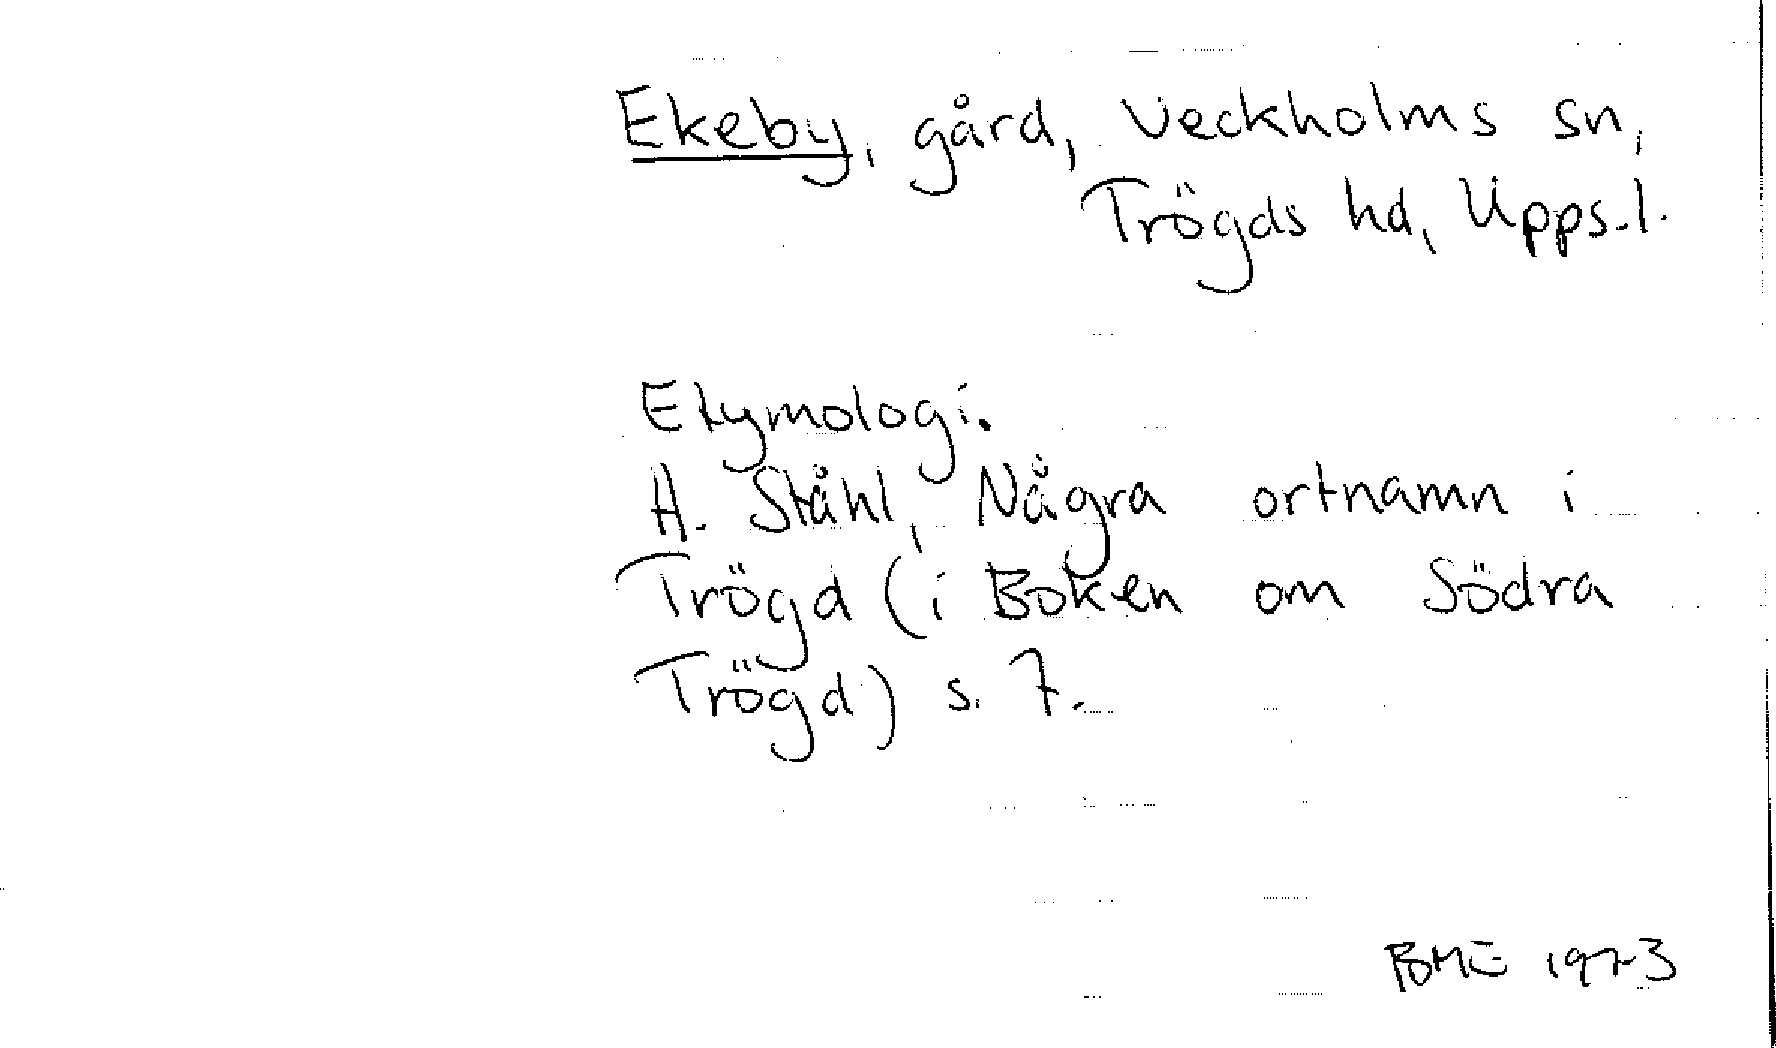 Ekeby, gård, Veckholms sn,
Trögds hd, Upps.l.
Etymologi.
H. Ståhl, Några ortnamn i
Trögd (i Boken om Södra
Trögd) s. 7.
BME 1973